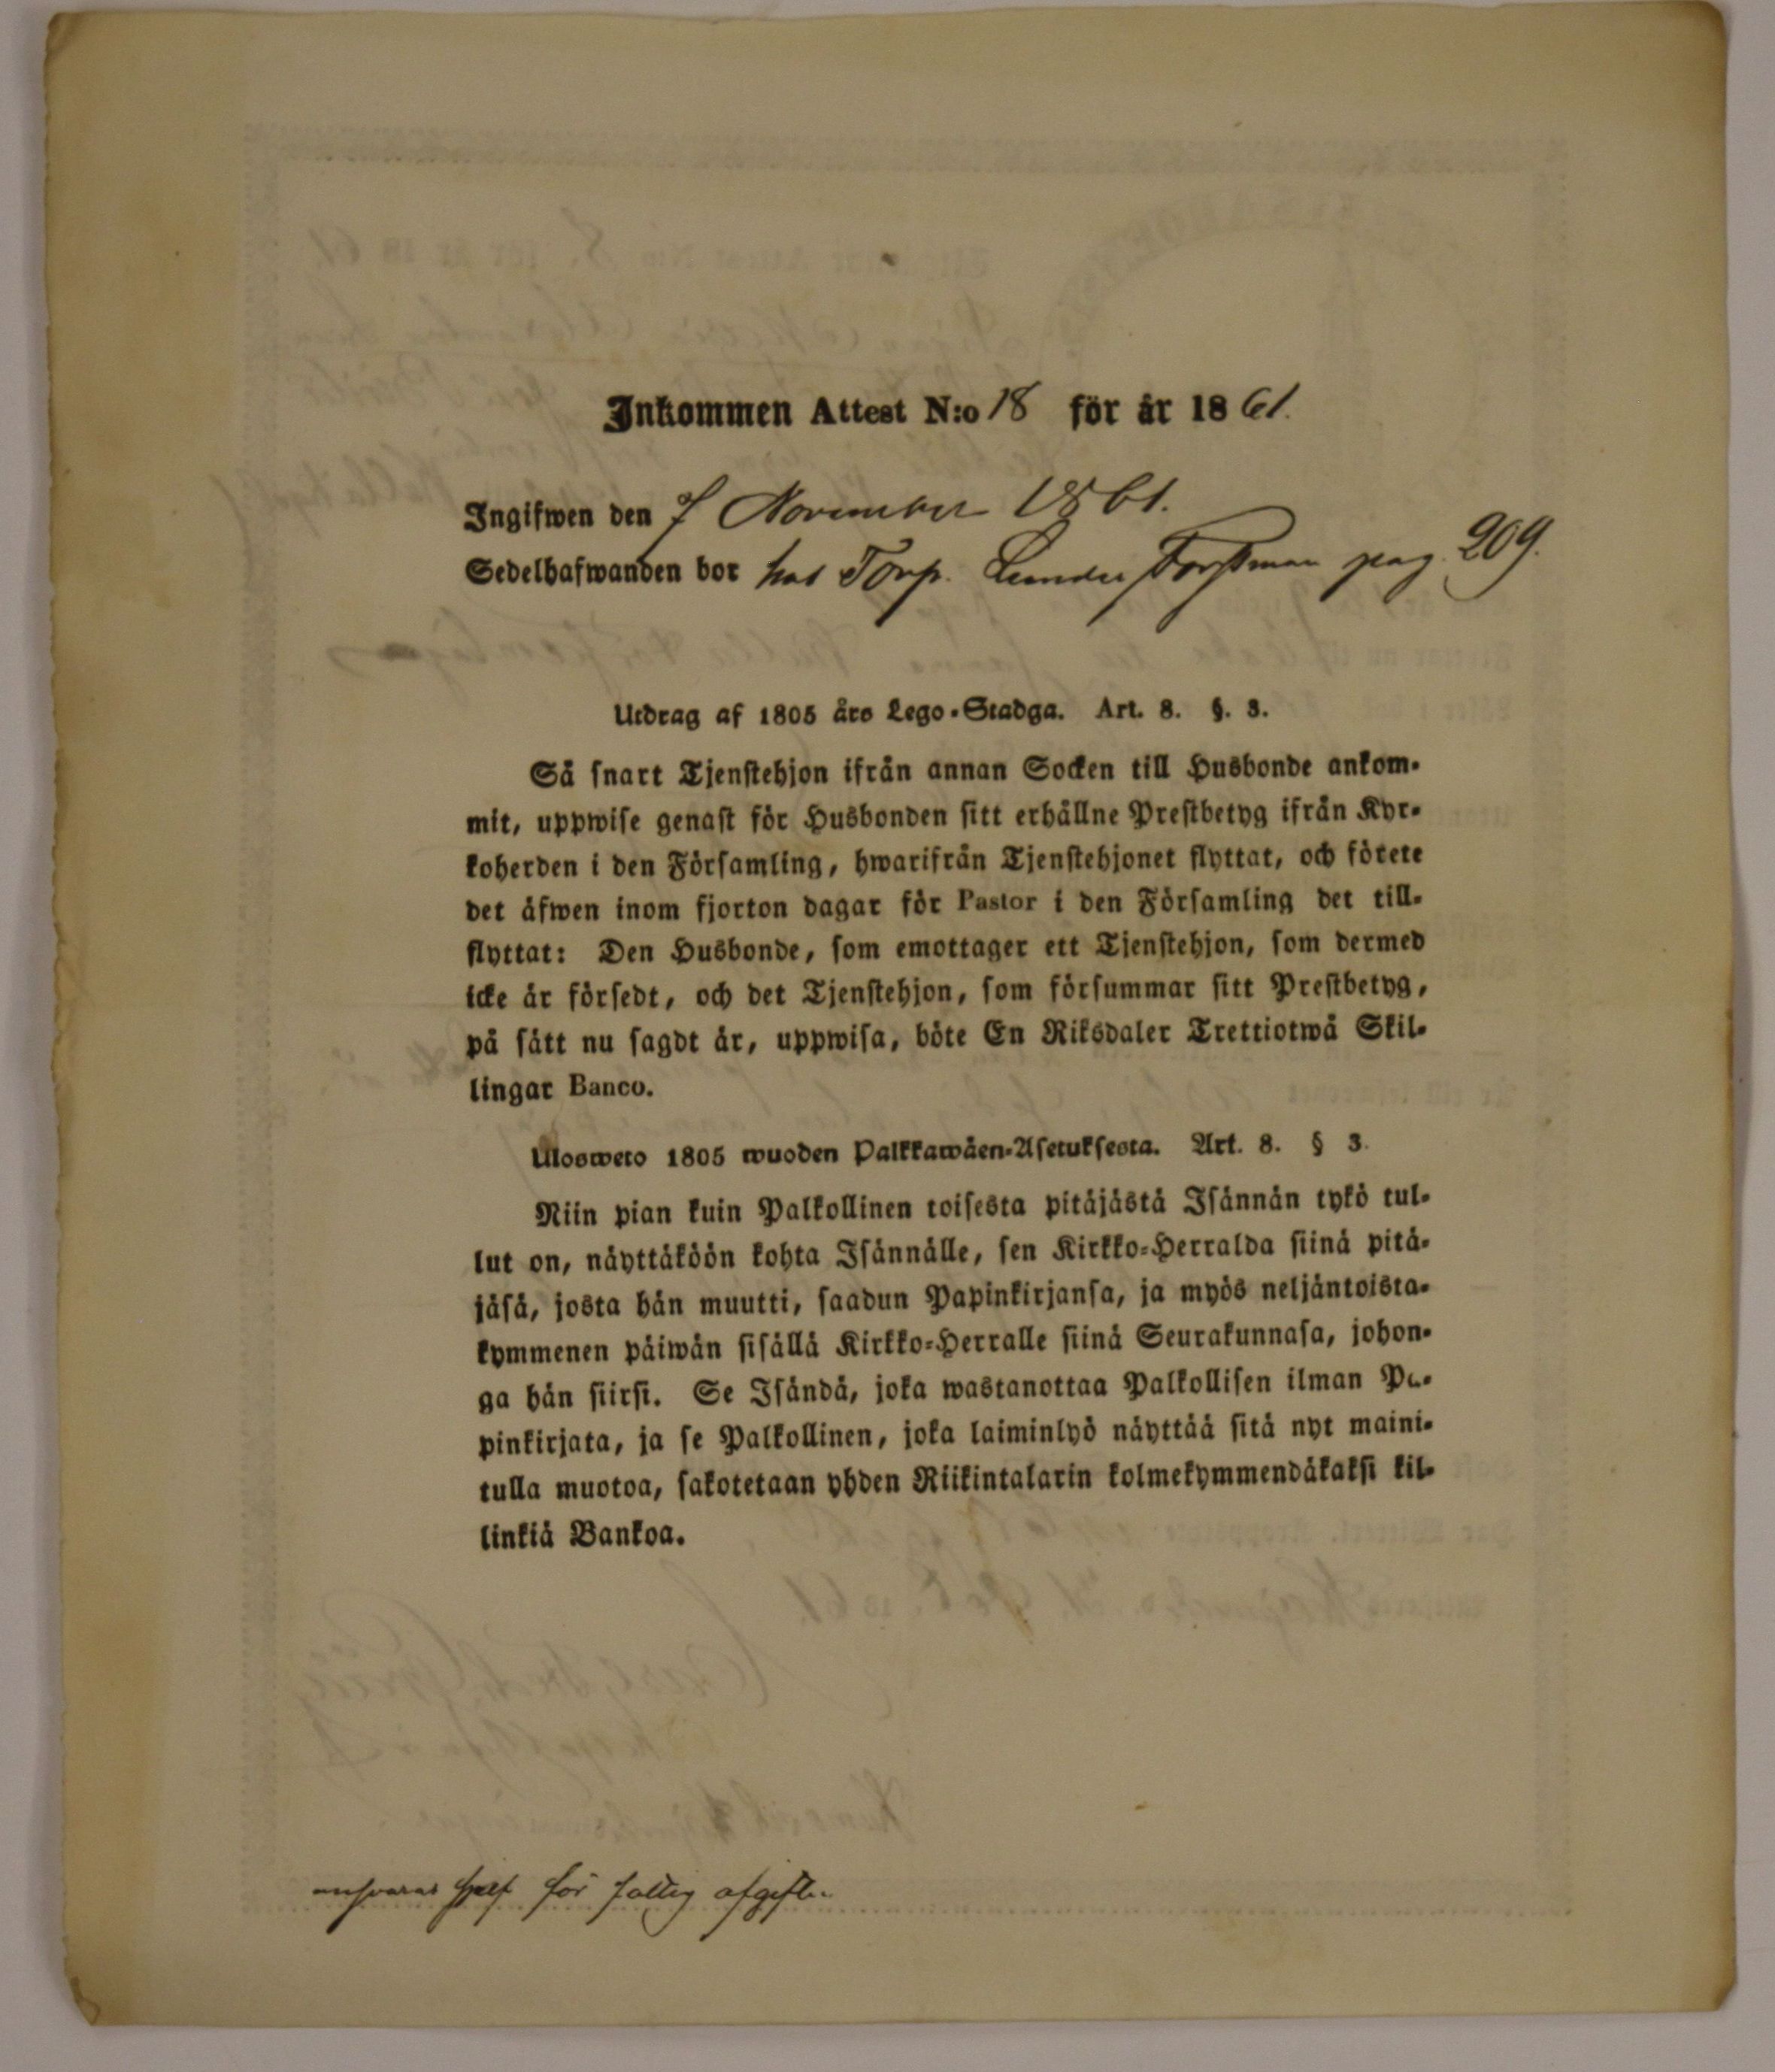 Inkommen Attest N:o 18 för år 1861.
Ingifwen den 7 November 1861.
Sedelhafwanden bor hos Torp. Forssman pag. 209.
Utdrag af 1805 års Lego-Stadga. Art. 8. §. 3.
Så snart Tjenstehjon ifrån annan Socken till Husbonde ankom-
mit, uppwise genast för Husbonden sitt erhållne Prestbetyg ifrån Kyr-
koherden i den Församling, hwarifrån Tjenstehjonet flyttat, och förete
det äfwen inom fjorton dagar för Pastor i den Församling det till-
flyttat: Den Husbonde, som emottager ett Tjenstehjon, som dermed
icke är försedt, och det Tjenstehjon, som försummar sitt Prestbetyg,
på sätt nu sagdt är, uppwisa, böte En Riksdaler Trettiotwå Skil-
lingar Banco.
Ulosweto 1805 wuoden Palkkawäen-Asetuksesta. Art. 8. § 3.
Niin pian kuin Palkollinen toisesta pitäjästä Isännän tykö tul-
lut on, näyttäköön kohta Isännälle, sen Kirkko-Herralda siinä pitä-
jäsä, josta hän muutti, saadun Papinkirjansa, ja myös neljäntoista-
kymmenen päiwän sisällä Kirkko-Herralle siinä Seurakunnasa, johon-
ga hän siirsi. Se Isändä, joka wastanottaa Palkollisen ilman Pa-
pinkirjata, ja se Palkollinen, joka laiminlyö näyttää sitä nyt maini-
tulla muotoa, sakotetaan yhden Riikintalarin kolmekymmendäkaksi kil-
linkiä Bankoa.
ansvarar sjelf för fattig afgiften